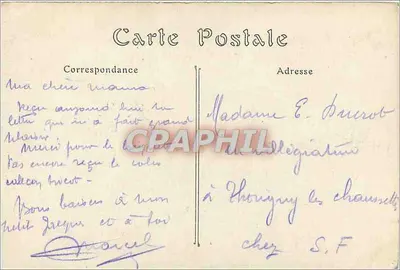 Carte Postale
Correspondance
Adresse
Ma chère mama
Reçu aujourd'hui ta
lettre qui m'a fait grand
plaisir
Merci pour le
Pas encore reçu le colis
caleçon tricot
Bons baisers à mon
petit et à toi
Marcel
Madame E.
en villégiature
à Thorigny les
chez S. F
CPARAPHIL.COM